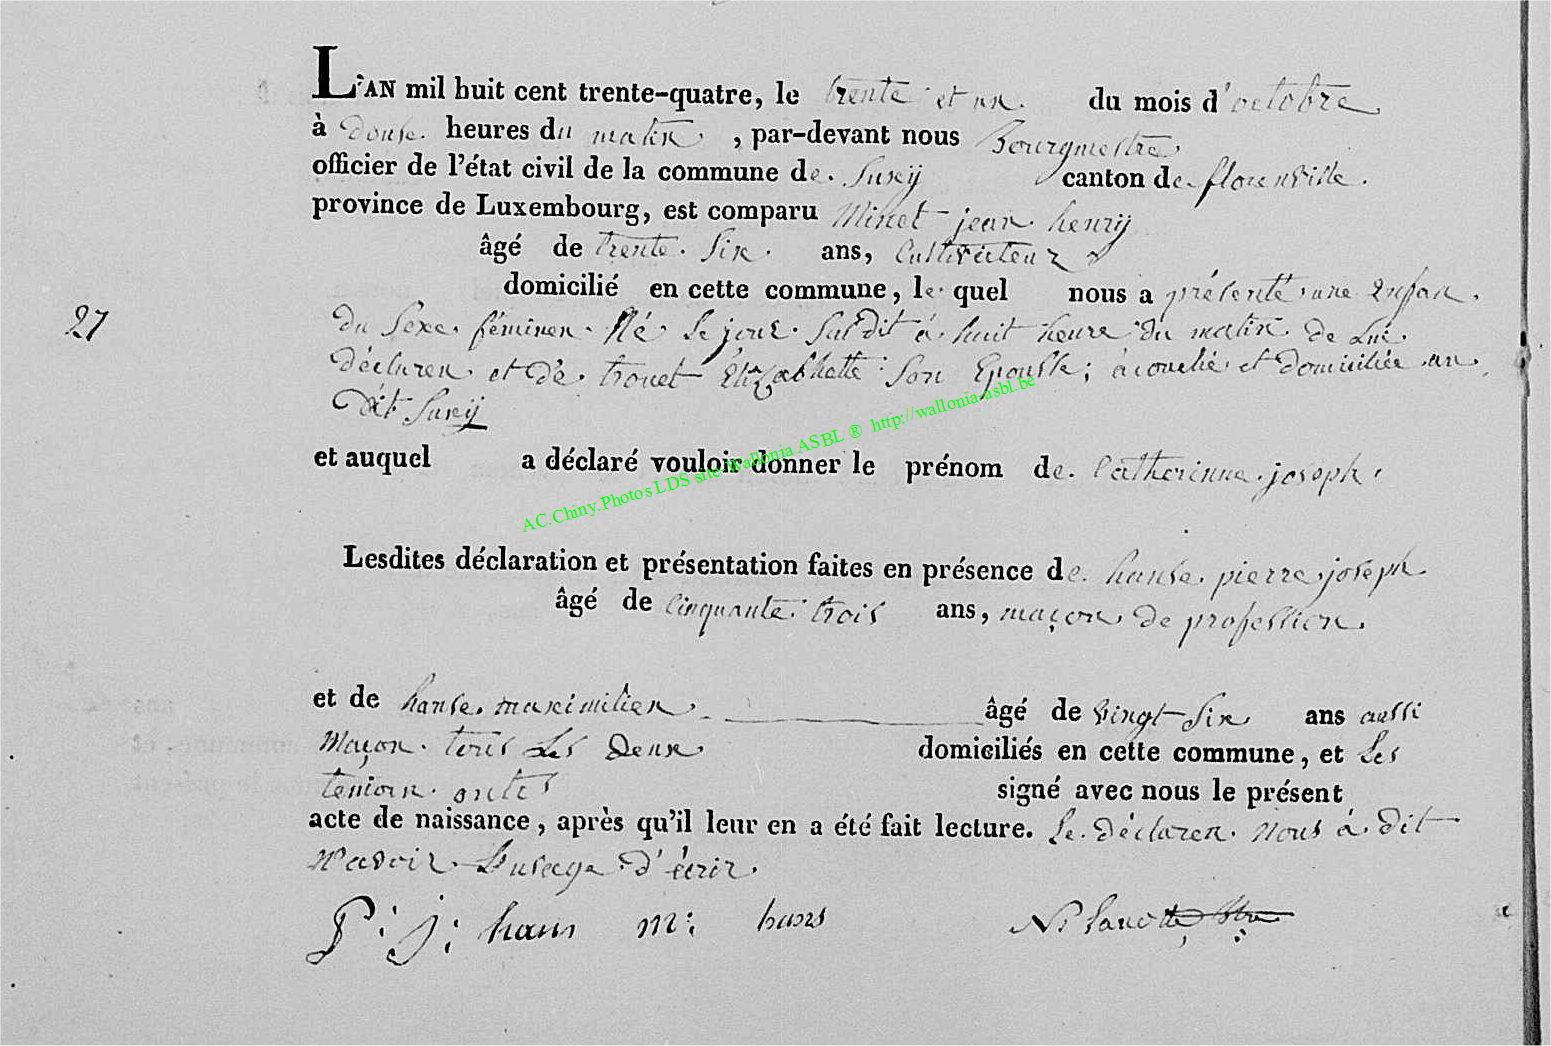 L'AN mil huit cent trente-quatre, le trente et un du mois d'octobre
à douse heures du matin, par-devant nous Bourgmestre
officier de l'état civil de la commune de Suxÿ canton de florenville
province de Luxembourg, est comparu Minet jean henrÿ
âgé de trente Six ans, Cultivateur
domicilié en cette commune, lequel nous a présenté une Enfan
du Sexe féminen Né le jour Sus dit à huit heure du matin de Lui
27
déclaren et de trouet Élizabhette Son Epouse; acouchée et domiciliée au
Dit Suxÿ
et auquel a déclaré vouloir donner le prénom de Catherinne joseph
AC.Chiny.Photos LDS site Wallonia ASBL ® http://wallonia-asbl.be
Lesdites déclaration et présentation faites en présence de hanse pierre joseph
âgé de Cinquante trois ans, maçon de profession.
et de hanse maximilien âgé de vingt Six ans aussi
Maçon tous Les Deux domiciliés en cette commune, et Les
temoin onts signé avec nous le présent
acte de naissance, après qu'il leur en a été fait lecture. Le déclaren Nous à dit
N'avoir L'usage d'écrir
P: j: hans m: hans